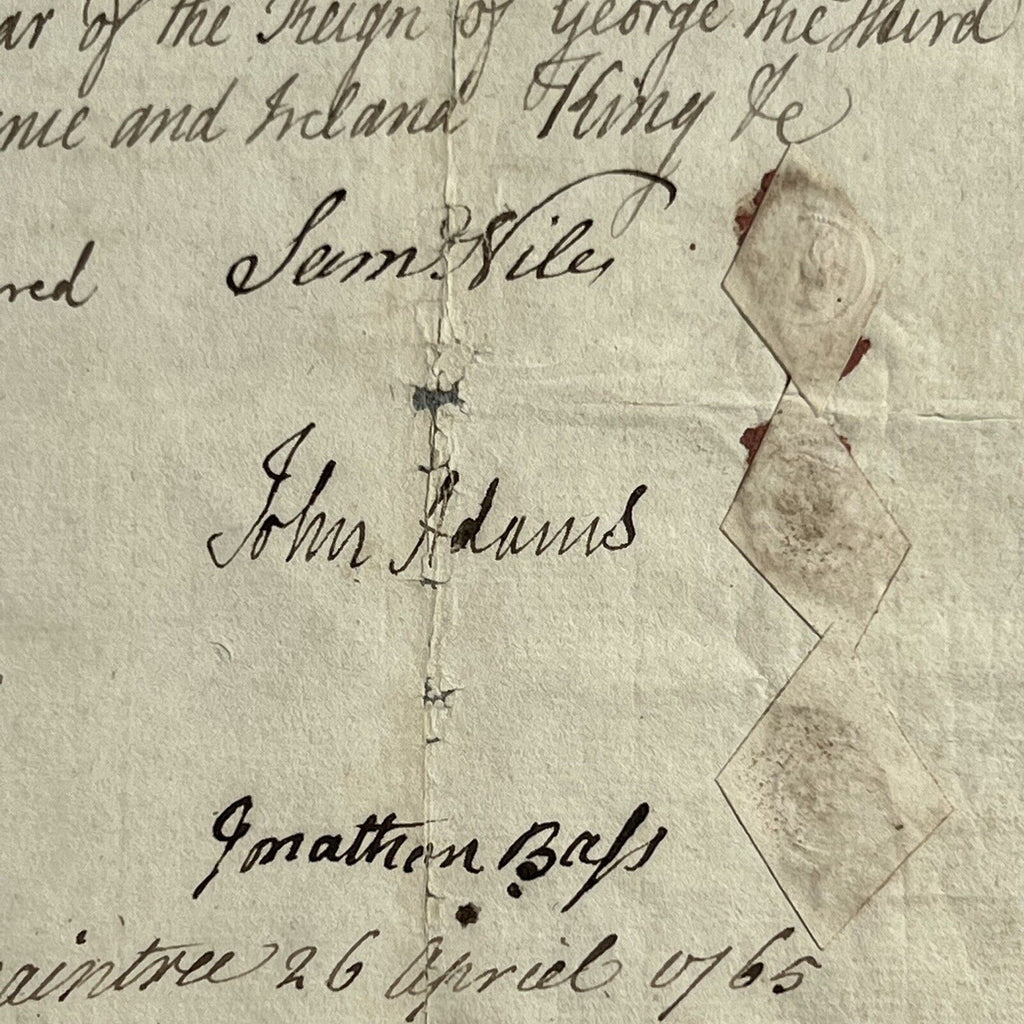 ar of the Reign of George the Third
and Ireland King &c
red Saml Niles
John Adams
Jonathan Baſs
aintree 26 April 1765